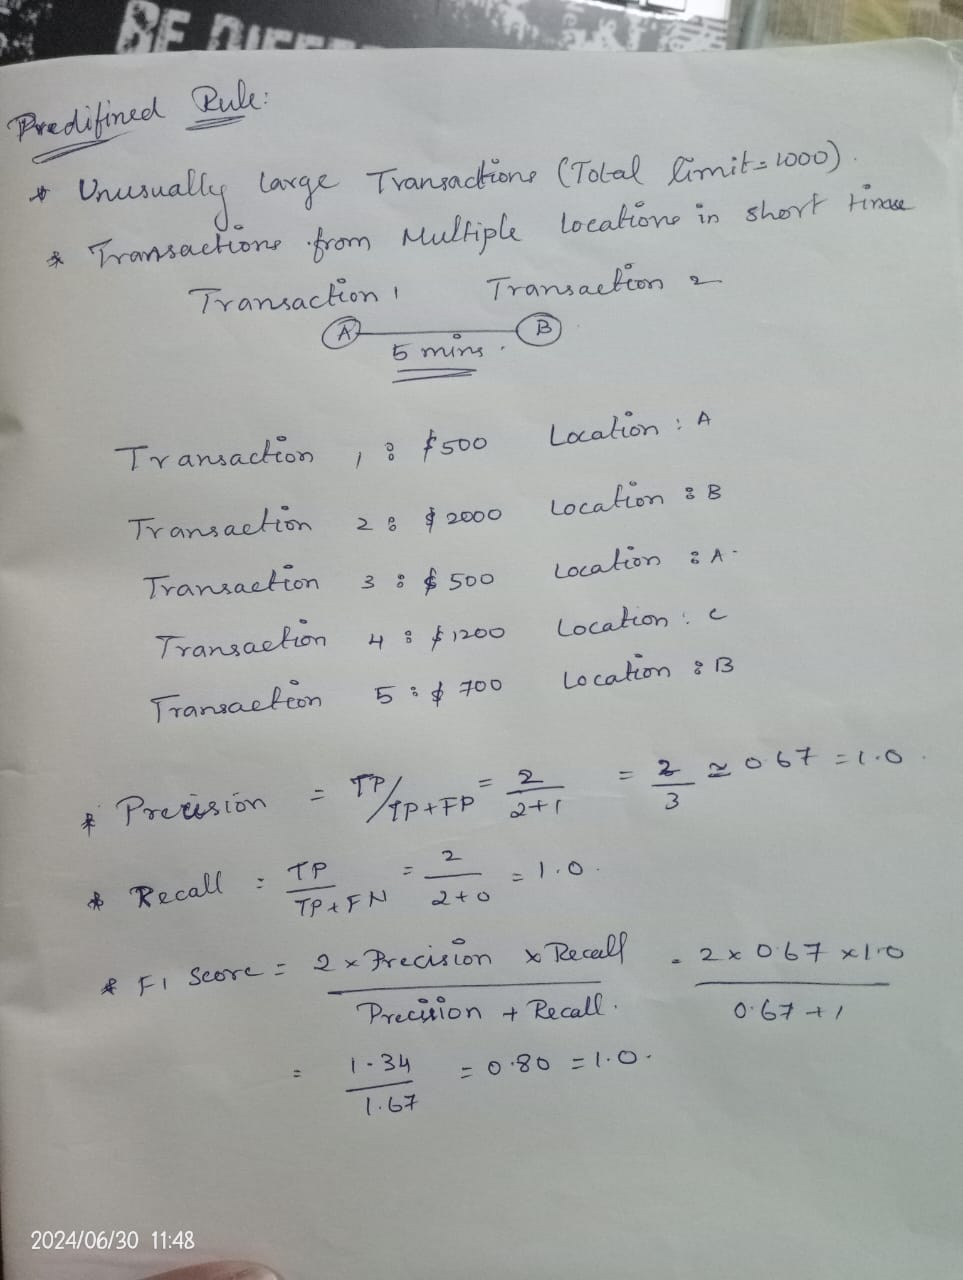 BE DIFFE
Predifined Rule:
* Unusually large Transactions (Total limit = 1000).
* Transactions from Multiple locations in short time
Transaction 1 Transaction 2
A B
5 mins.
Transaction 1 : $500 Location : A
Transaction 2 : $2000 Location : B
Transaction 3 : $500 Location : A.
Transaction 4 : $1200 Location : C
Transaction 5 : $700 Location : B
* Precision = TP/TP+FP = 2/2+1 = 2/3 ≃ 0.67 = 1.0.
* Recall : TP/TP+FN = 2/2+0 = 1.0.
* F1 Score = 2 x Precision x Recall/Precision + Recall. = 2 x 0.67 x 1.0/0.67 + 1
= 1.34/1.67 = 0.80 = 1.0.
2024/06/30 11:48